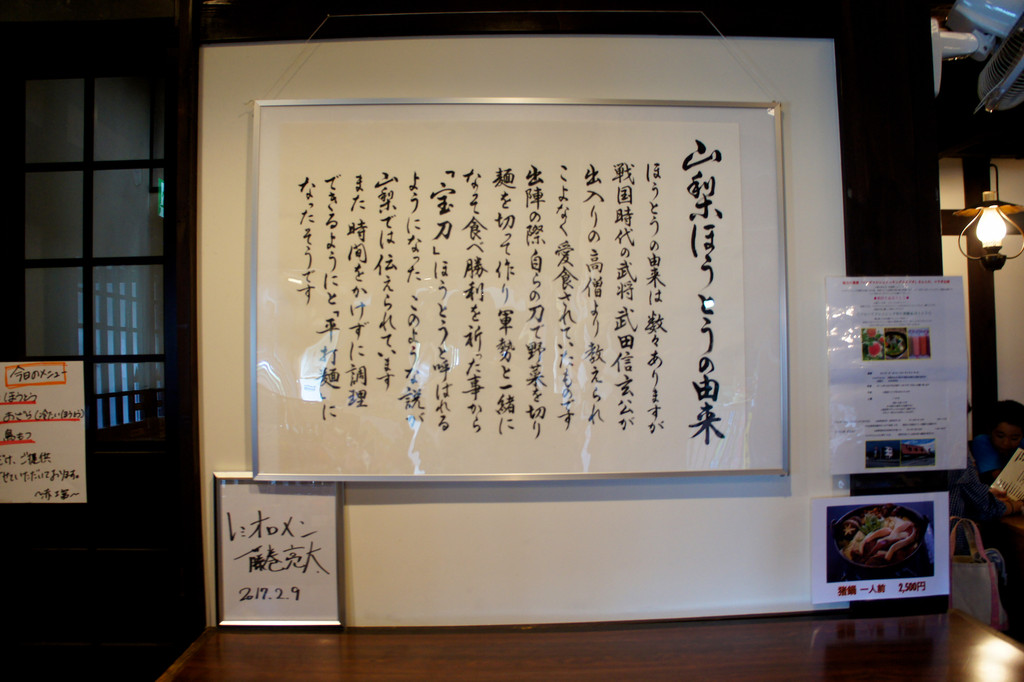 山梨ほうとうの由来
ほうとうの由来は数々ありますが
戦国時代の武将 武田信玄公が
出入りの高僧より教えられ
こよなく愛食されていたものです
出陣の際 自らの刀で野菜を切り
麺を切って作り 軍勢と一緒に
なそ食べ勝利を祈った事から
「宝刀」ほうとうと呼ばれる
ようになった このような説が
山梨では伝えられています
また 時間をかけずに調理
できるようにと「平打麺」に
なったそうです
今日のメニュー
ほうとう
おざら(冷たいほうとう)
鳥もつ
だけ、ご提供
せていただいております。
レミオロメン
藤巻亮太
2017.2.9
猪鍋 一人前 2,500円